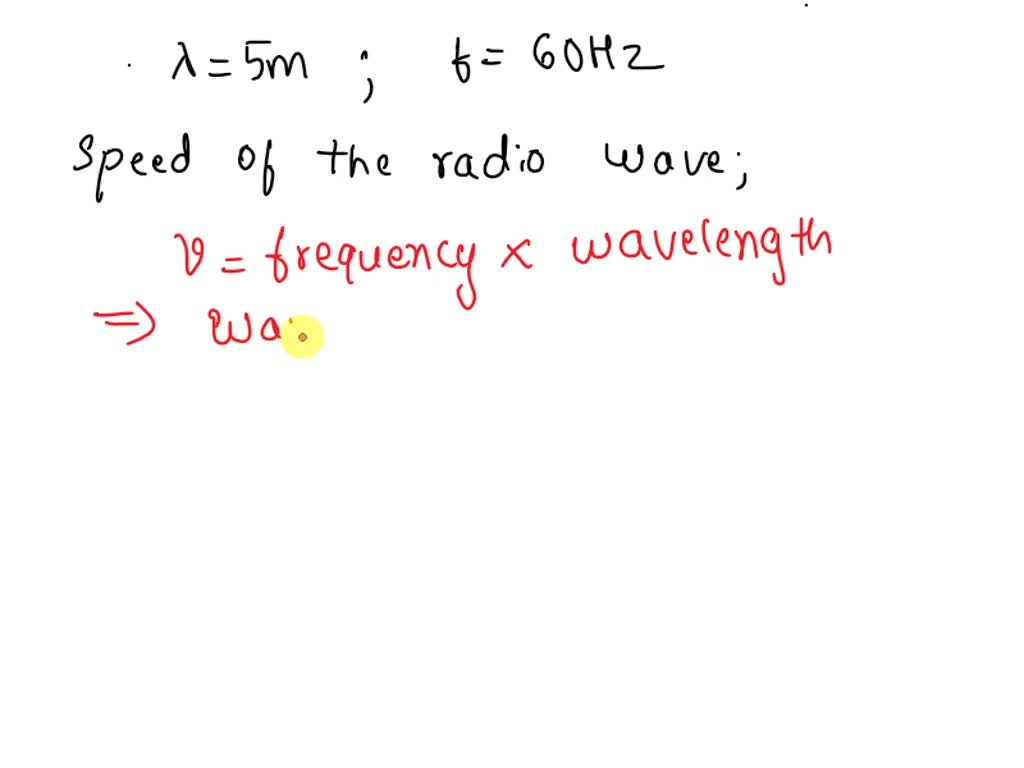 λ = 5m ; f = 60Hz
Speed of the radio wave;
v = frequency × wavelength
⇒ wa